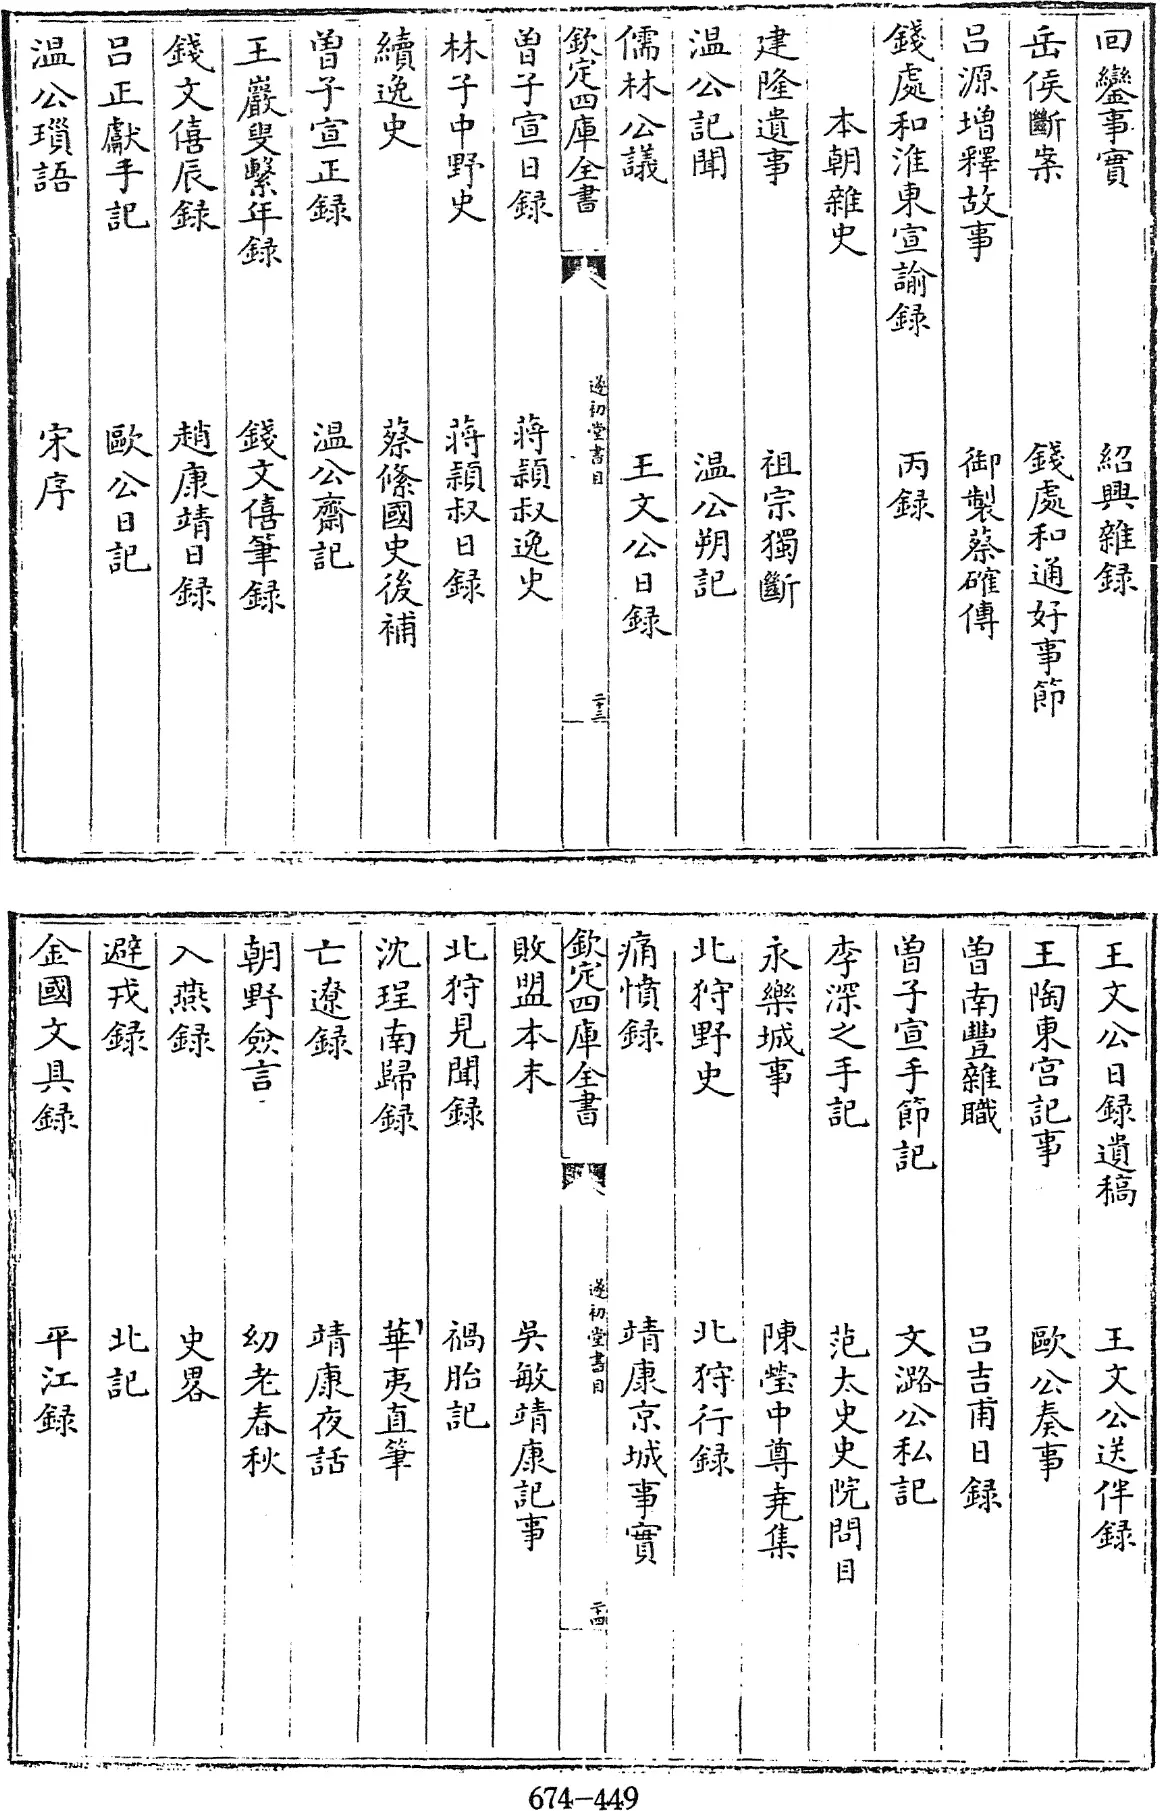 回鑾事實　紹興雜録
岳侯斷案　錢處和通好事節
吕源增釋故事　御製蔡確傳
錢處和淮東宣諭録　丙録
本朝雜史
建隆遺事　祖宗獨斷
温公記聞　温公朔記
儒林公議　王文公日録
欽定四庫全書　遂初堂書目　二十三
曽子宣日録　蔣頴叔逸史
林子中野史　蔣頴叔日録
續逸史　蔡絛國史後補
曽子宣正録　温公齋記
王巖叟繫年録　錢文僖筆録
錢文僖辰録　趙康靖日録
吕正獻手記　歐公日記
温公瑣語　宋序
王文公日録遺稿　王文公送伴録
王陶東宫記事　歐公奏事
曽南豐雜職　吕吉甫日録
曽子宣手節記　文潞公私記
李深之手記　范太史史院問目
永樂城事　陳瑩中尊堯集
北狩野史　北狩行録
痛憤録　靖康京城事實
欽定四庫全書　遂初堂書目　二十四
敗盟本末　吳敏靖康記事
北狩見聞録　禍胎記
沈珵南歸録　華夷直筆
亡遼録　靖康夜話
朝野僉言　幼老春秋
入燕録　史畧
避戎録　北記
金國文具録　平江録
674-449